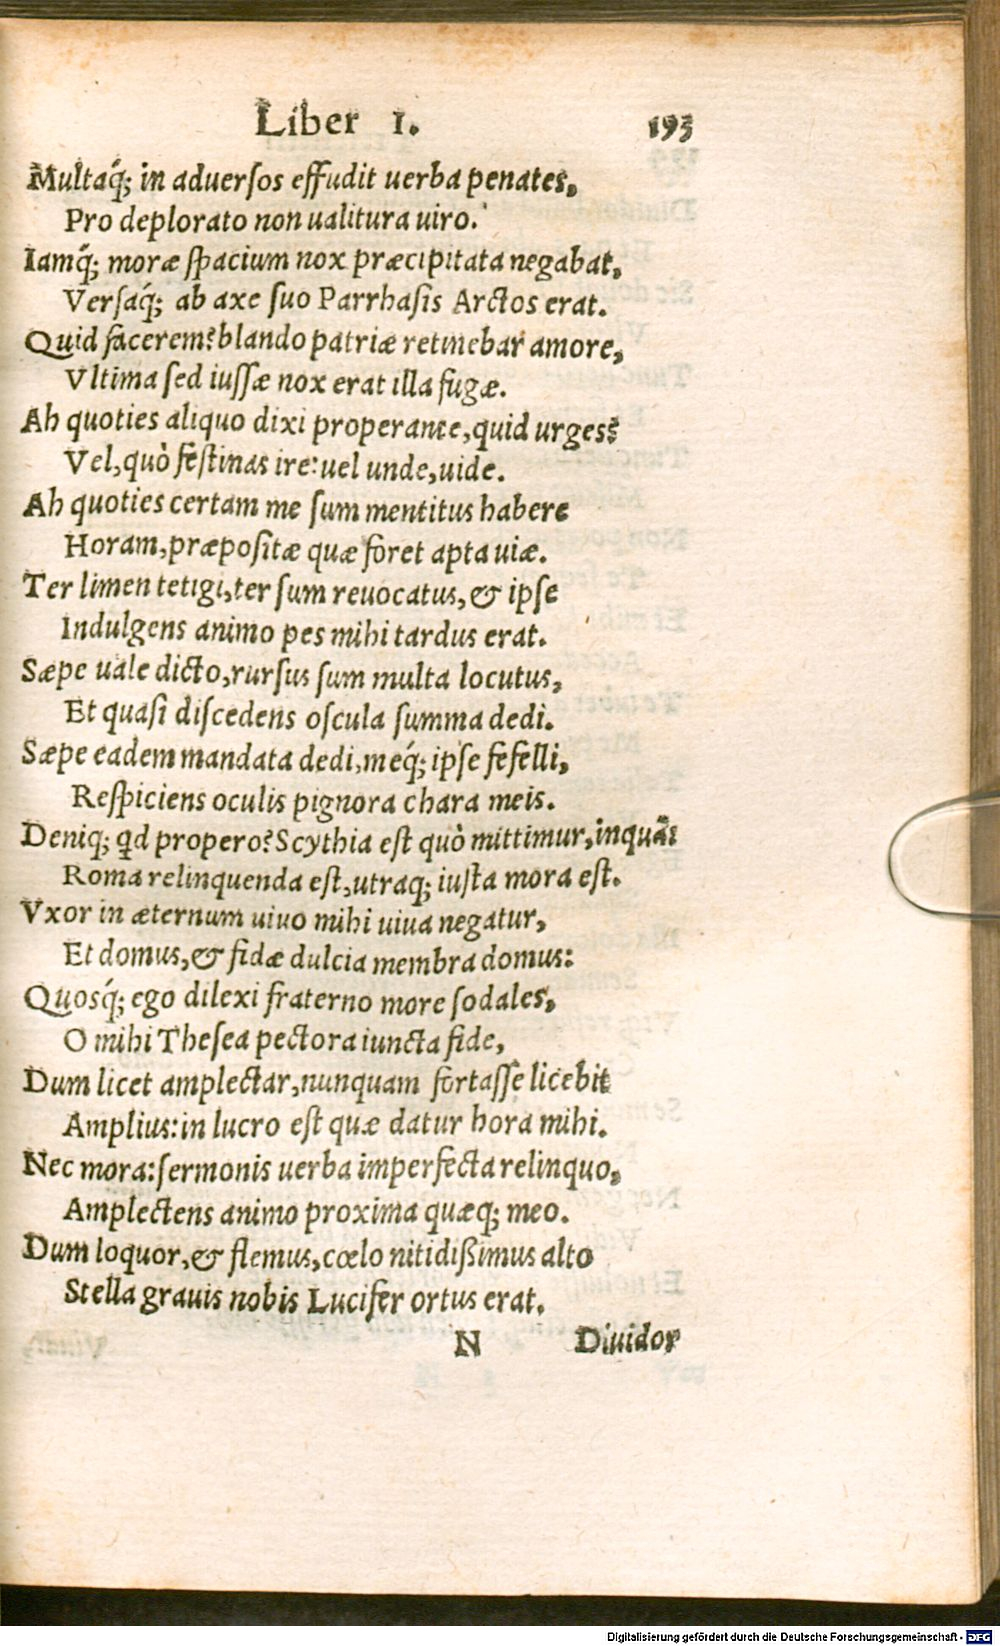 Liber I. 193
Multaq́; in aduerſos effudit uerba penates,
Pro deplorato non ualitura uiro.
Iamq́; moræ ſpacium nox præcipitata negabat,
Verſaq́; ab axe ſuo Parrhaſis Arctos erat.
Quid facerem? blando patriæ retinebar amore,
Vltima ſed iuſſæ nox erat illa fugæ.
Ah quoties aliquo dixi properante, quid urges?
Vel, quò feſtinas ire: uel unde, uide.
Ah quoties certam me ſum mentitus habere
Horam, præpoſitæ quæ foret apta uiæ.
Ter limen tetigi, ter ſum reuocatus, & ipſe
Indulgens animo pes mihi tardus erat.
Sæpe uale dicto, rurſus ſum multa locutus,
Et quaſi diſcedens oſcula ſumma dedi.
Sæpe eadem mandata dedi, meq́; ipſe fefelli,
Reſpiciens oculis pignora chara meis.
Deniq; qd propero? Scythia eſt quò mittimur, inquã:
Roma relinquenda eſt, utraq; iuſta mora eſt.
Vxor in æternum uiuo mihi uiua negatur,
Et domus, & fidæ dulcia membra domus:
Quosq́; ego dilexi fraterno more ſodales,
O mihi Theſea pectora iuncta fide,
Dum licet amplectar, nunquam fortaſſe licebit
Amplius: in lucro eſt quæ datur hora mihi.
Nec mora: ſermonis uerba imperfecta relinquo,
Amplectens animo proxima quæq; meo.
Dum loquor, & flemus, cœlo nitidißimus alto
Stella grauis nobis Lucifer ortus erat.
N Diuidor
Digitalisierung gefördert durch die Deutsche Forschungsgemeinschaft - DFG